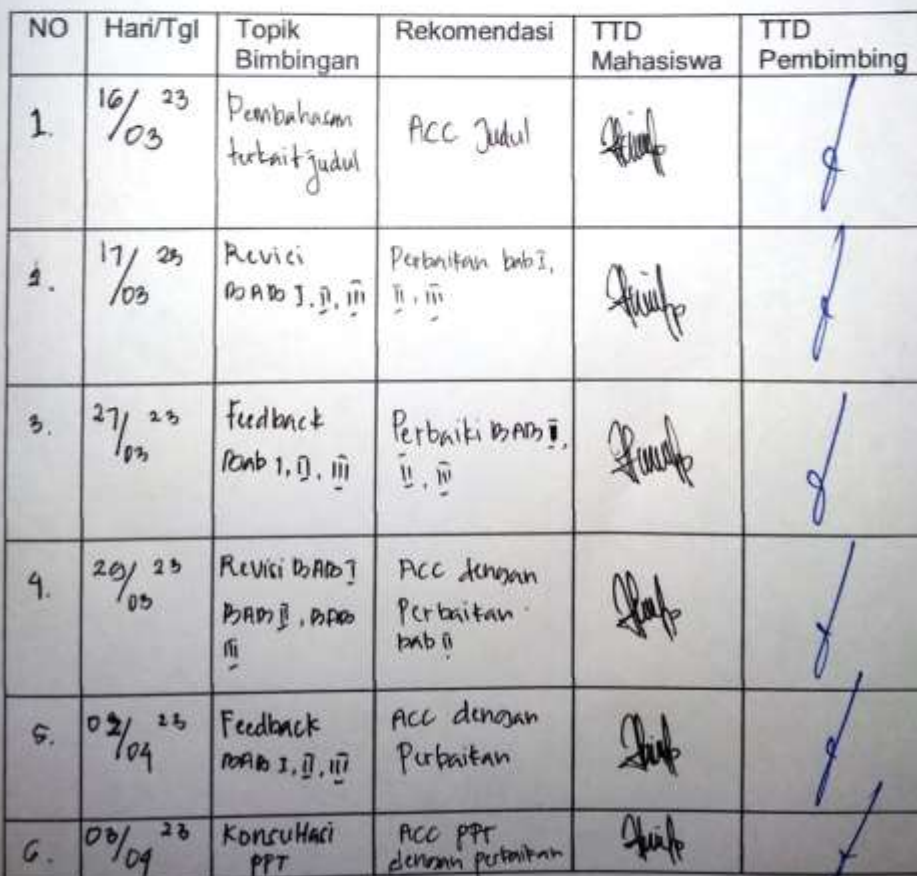 NO Hari/Tgl Topik Bimbingan Rekomendasi TTD Mahasiswa TTD Pembimbing
1. 16/03 23 Pembahasan terkait judul ACC Judul
2. 17/03 23 Revisi BAB I, II, III Perbaikan bab I, II, III
3. 27/03 23 Feedback Bab 1, II, III Perbaiki BAB I, II, III
4. 29/03 23 Revisi BAB I BAB II, BAB III ACC dengan Perbaikan bab II
5. 02/04 23 Feedback BAB I, II, III ACC dengan Perbaikan
6. 03/04 23 Konsultasi PPT ACC PPT dengan perbaikan